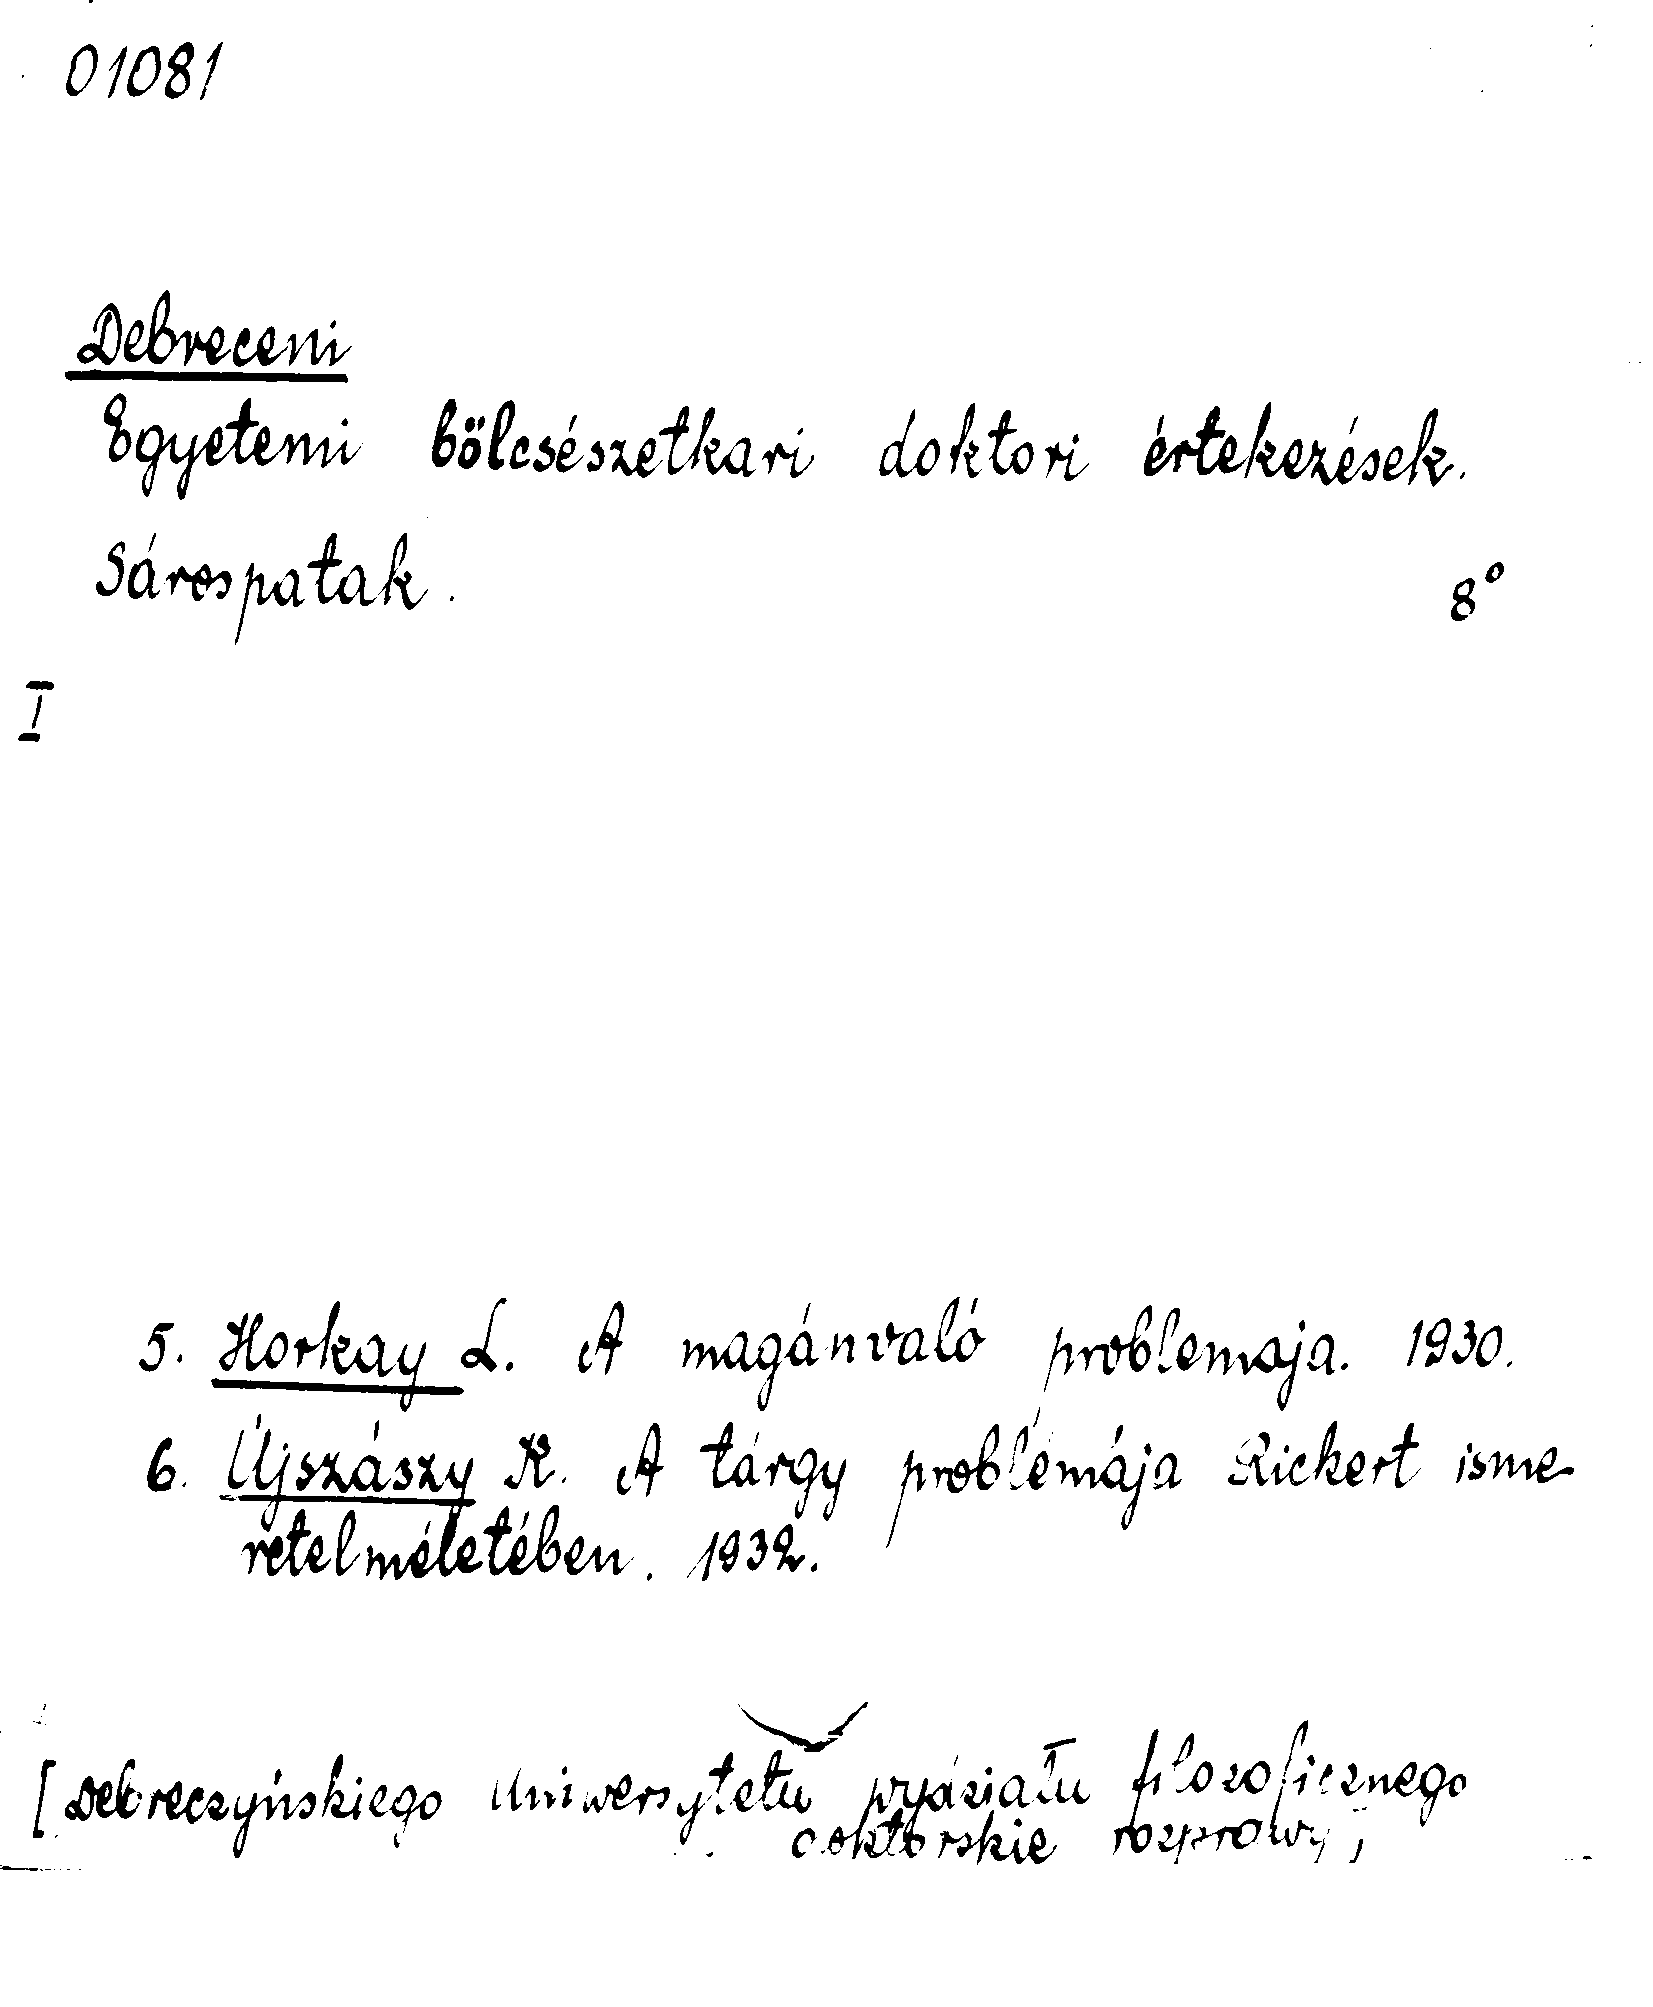 01081
Debreceni
Egyetemi bölcsészetkari doktori értekezések.
Sárospatak.
8°
I
5. Horkay L. A magánvaló problemaja. 1930.
6. Újszászy K. A tárgy problémája Rickert isme-
retelméletében. 1932.
[Debreczyńskiego Uniwersytetu wydziału filozoficznego
doktorskie rozprawy]